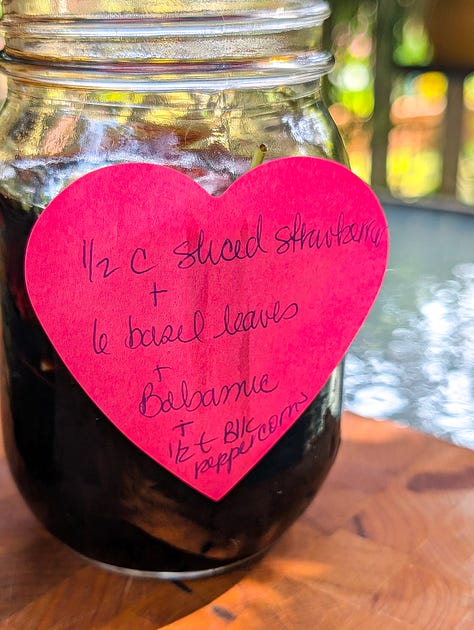 1/2 C sliced strawberries
+
6 basil leaves
+
Balsamic
+
1/2 t Blk
peppercorns